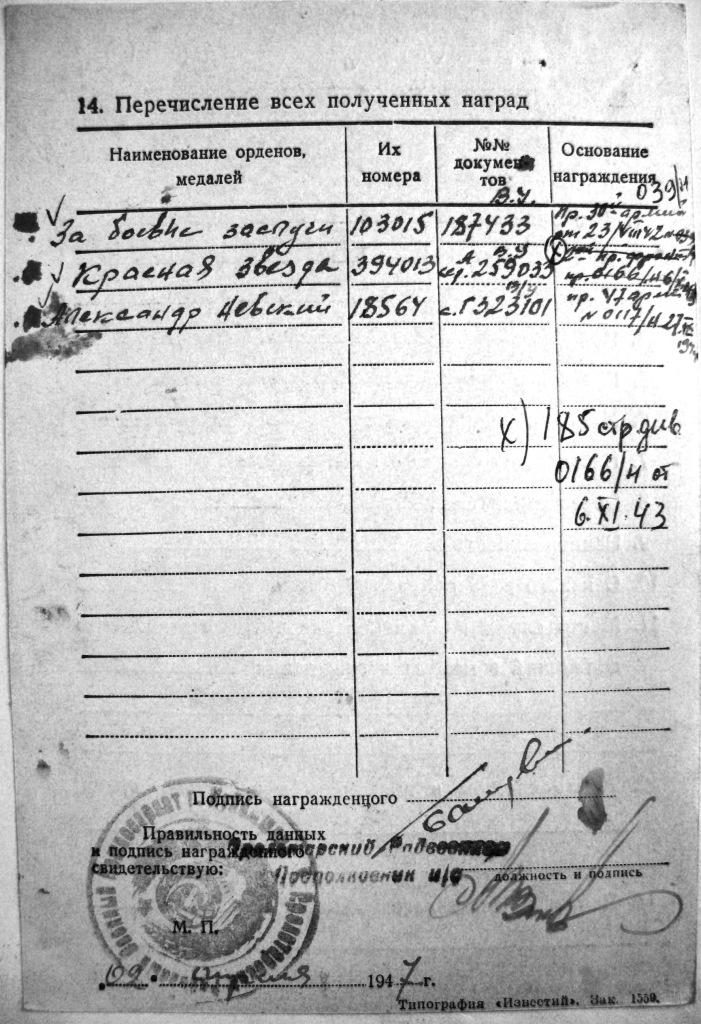 14. Перечисление всех полученных наград
Наименование орденов, медалей
Их номера
№№ документов
Основание награждения
В.У. 039/н
За боевые заслуги 103015 187433 пр. 30й армии
от 23/VIII 42
Красная звезда 394013 А В/У сер. 259033 (х) пр. фронта
пр. 0166/н 6/XI
Александр Невский 18564 В/У с. Г 323101 пр. 47 арм.
№ 0117/н 27
х) 185 стр. див.
0166/н от
6.XI.43
Подпись награжденного
Правильность данных
и подпись награжденного Пролетарский Райвоенком
свидетельствую: Подполковник и/с должность и подпись
М. П.
"09" апреля 1947 г.
Типография «Известий». Зак. 1559.